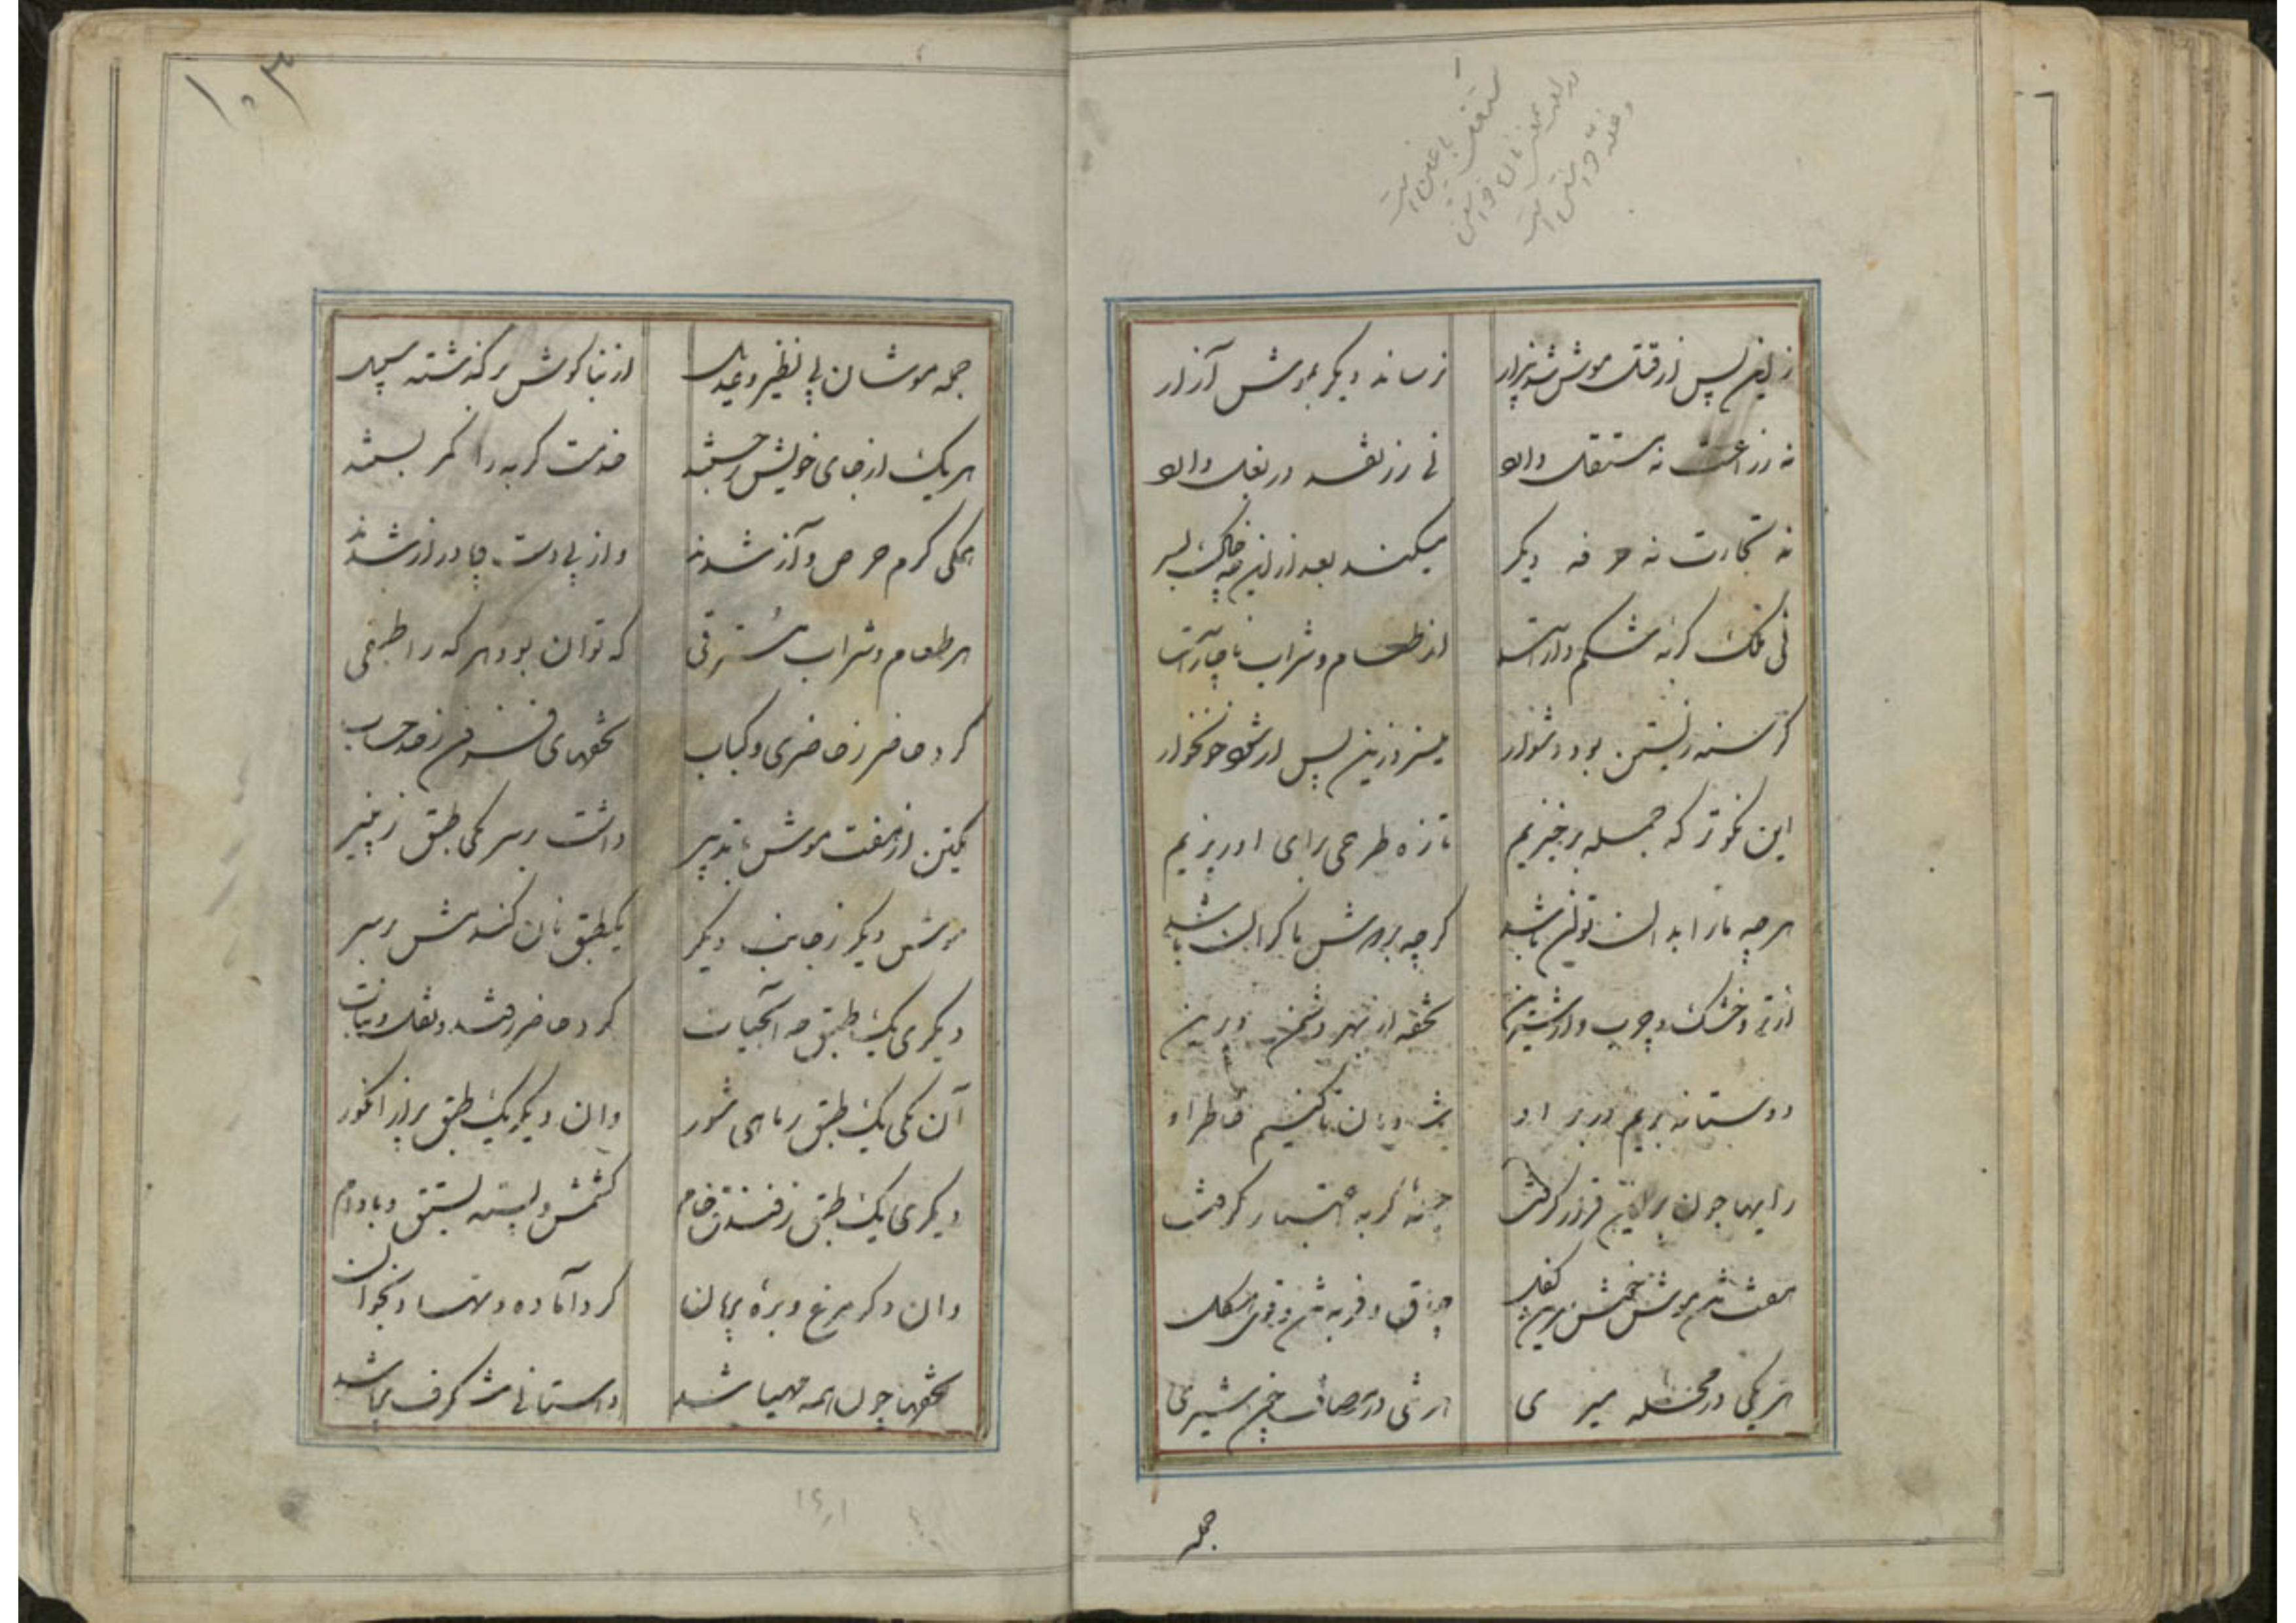 زین سپس از قتل موش شد بیزار
نرساند دیگر بموش آزار
نه زراعت نه مستقل دارد
نی زر نقد در بغل دارد
نه تجارت نه حرفه دیگر
میکند بعد ازین چه خاک بسر
نی فلک گربه شکم دار است
از طعام و شراب ناچار است
گرسنه زیستن بود دشوار
زین سپس از شه خونخوار
این نکوتر که جمله برخیزیم
تازه طرحی برای او ریزیم
هر چه ما را بدان توان باشد
گرچه بر موش ما گران باشد
از تر و خشک و چرب و از شیرین
تحفه از بهر دشمن دیرین
دوستانه بریم در بر او
شادمان تا کنیم خاطر او
رایها چون برین قرار گرفت
گربه اشتهار گرفت
هفت تن موش
چابق و فربه تن و قوی هیکل
هر یکی در محله میری
هر تنی در مصاف چون شیری
جمله
۱۰۳
جمله موشان بی نظیر و عدیل
از بناگوش برگذشته سبیل
هر یک از جای خویش برجسته
خدمت گربه را کمر بسته
همگی گرم حرص و آز شدند
واز پی دست چپا دراز شدند
هر طعام و شراب مسترقی
که توان بود هر که را طبقی
کرد حاضر ز حاضری و کباب
تحفهای فزون ز حد حساب
یکتن از هفت موش با تدبیر
داشت بر سر یکی طبق ز پنیر
موش دیگر ز جانب دیگر
یکطبق نان گندمش بر سر
دیگری یک طبق چه آبحیات
کرد حاضر ز قند و نقل و نبات
آن یکی یک طبق ز ماهی شور
وان دیگر یک طبق پر از انگور
دیگری یک طبق ز فندق خام
کشمش و پسته پستق و بادام
وان دگر مرغ و بره بریان
کرد آماده و نهاد بخوان
تحفها چون همه مهیا شد
داستانی شگرف برپا شد